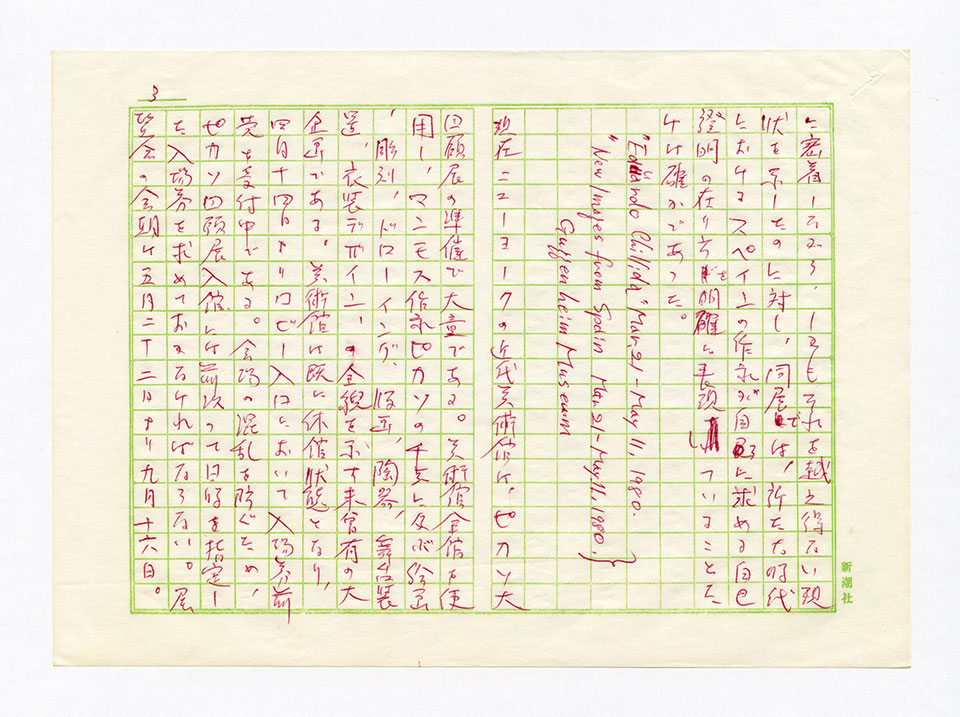 3
に密着しており、しかもそれを越え得ない現
状を示したのに対し、同展では、新たな時代
におけるスペインの作家が自己に求める自己
証明の在り方を明確に表現していることだ
けは確かであった。
"Eduardo Chillida" Mar. 21 – May 11, 1980.
"New Images from Spain Mar. 21 – May 11, 1980.
Guggenheim Museum
現在ニューヨークの近代美術館は、ピカソ大
回顧展の準備で大童である。美術館全館を使
用し、マンモス作家ピカソの千点に及ぶ絵画
、彫刻、ドローイング、版画、陶器、舞台装
置、衣装デザイン、の全貌を示す未曾有の大
企画である。美術館は既に休館状態となり、
四月十四日よりロビー入口において入場券前
売を受付中である。会場の混乱を防ぐため、
ピカソ回顧展入館には前以って日時を指定し
た入場券を求めておかなければならない。展
覧会の会期は五月二十二日より九月十六日。
新潮社